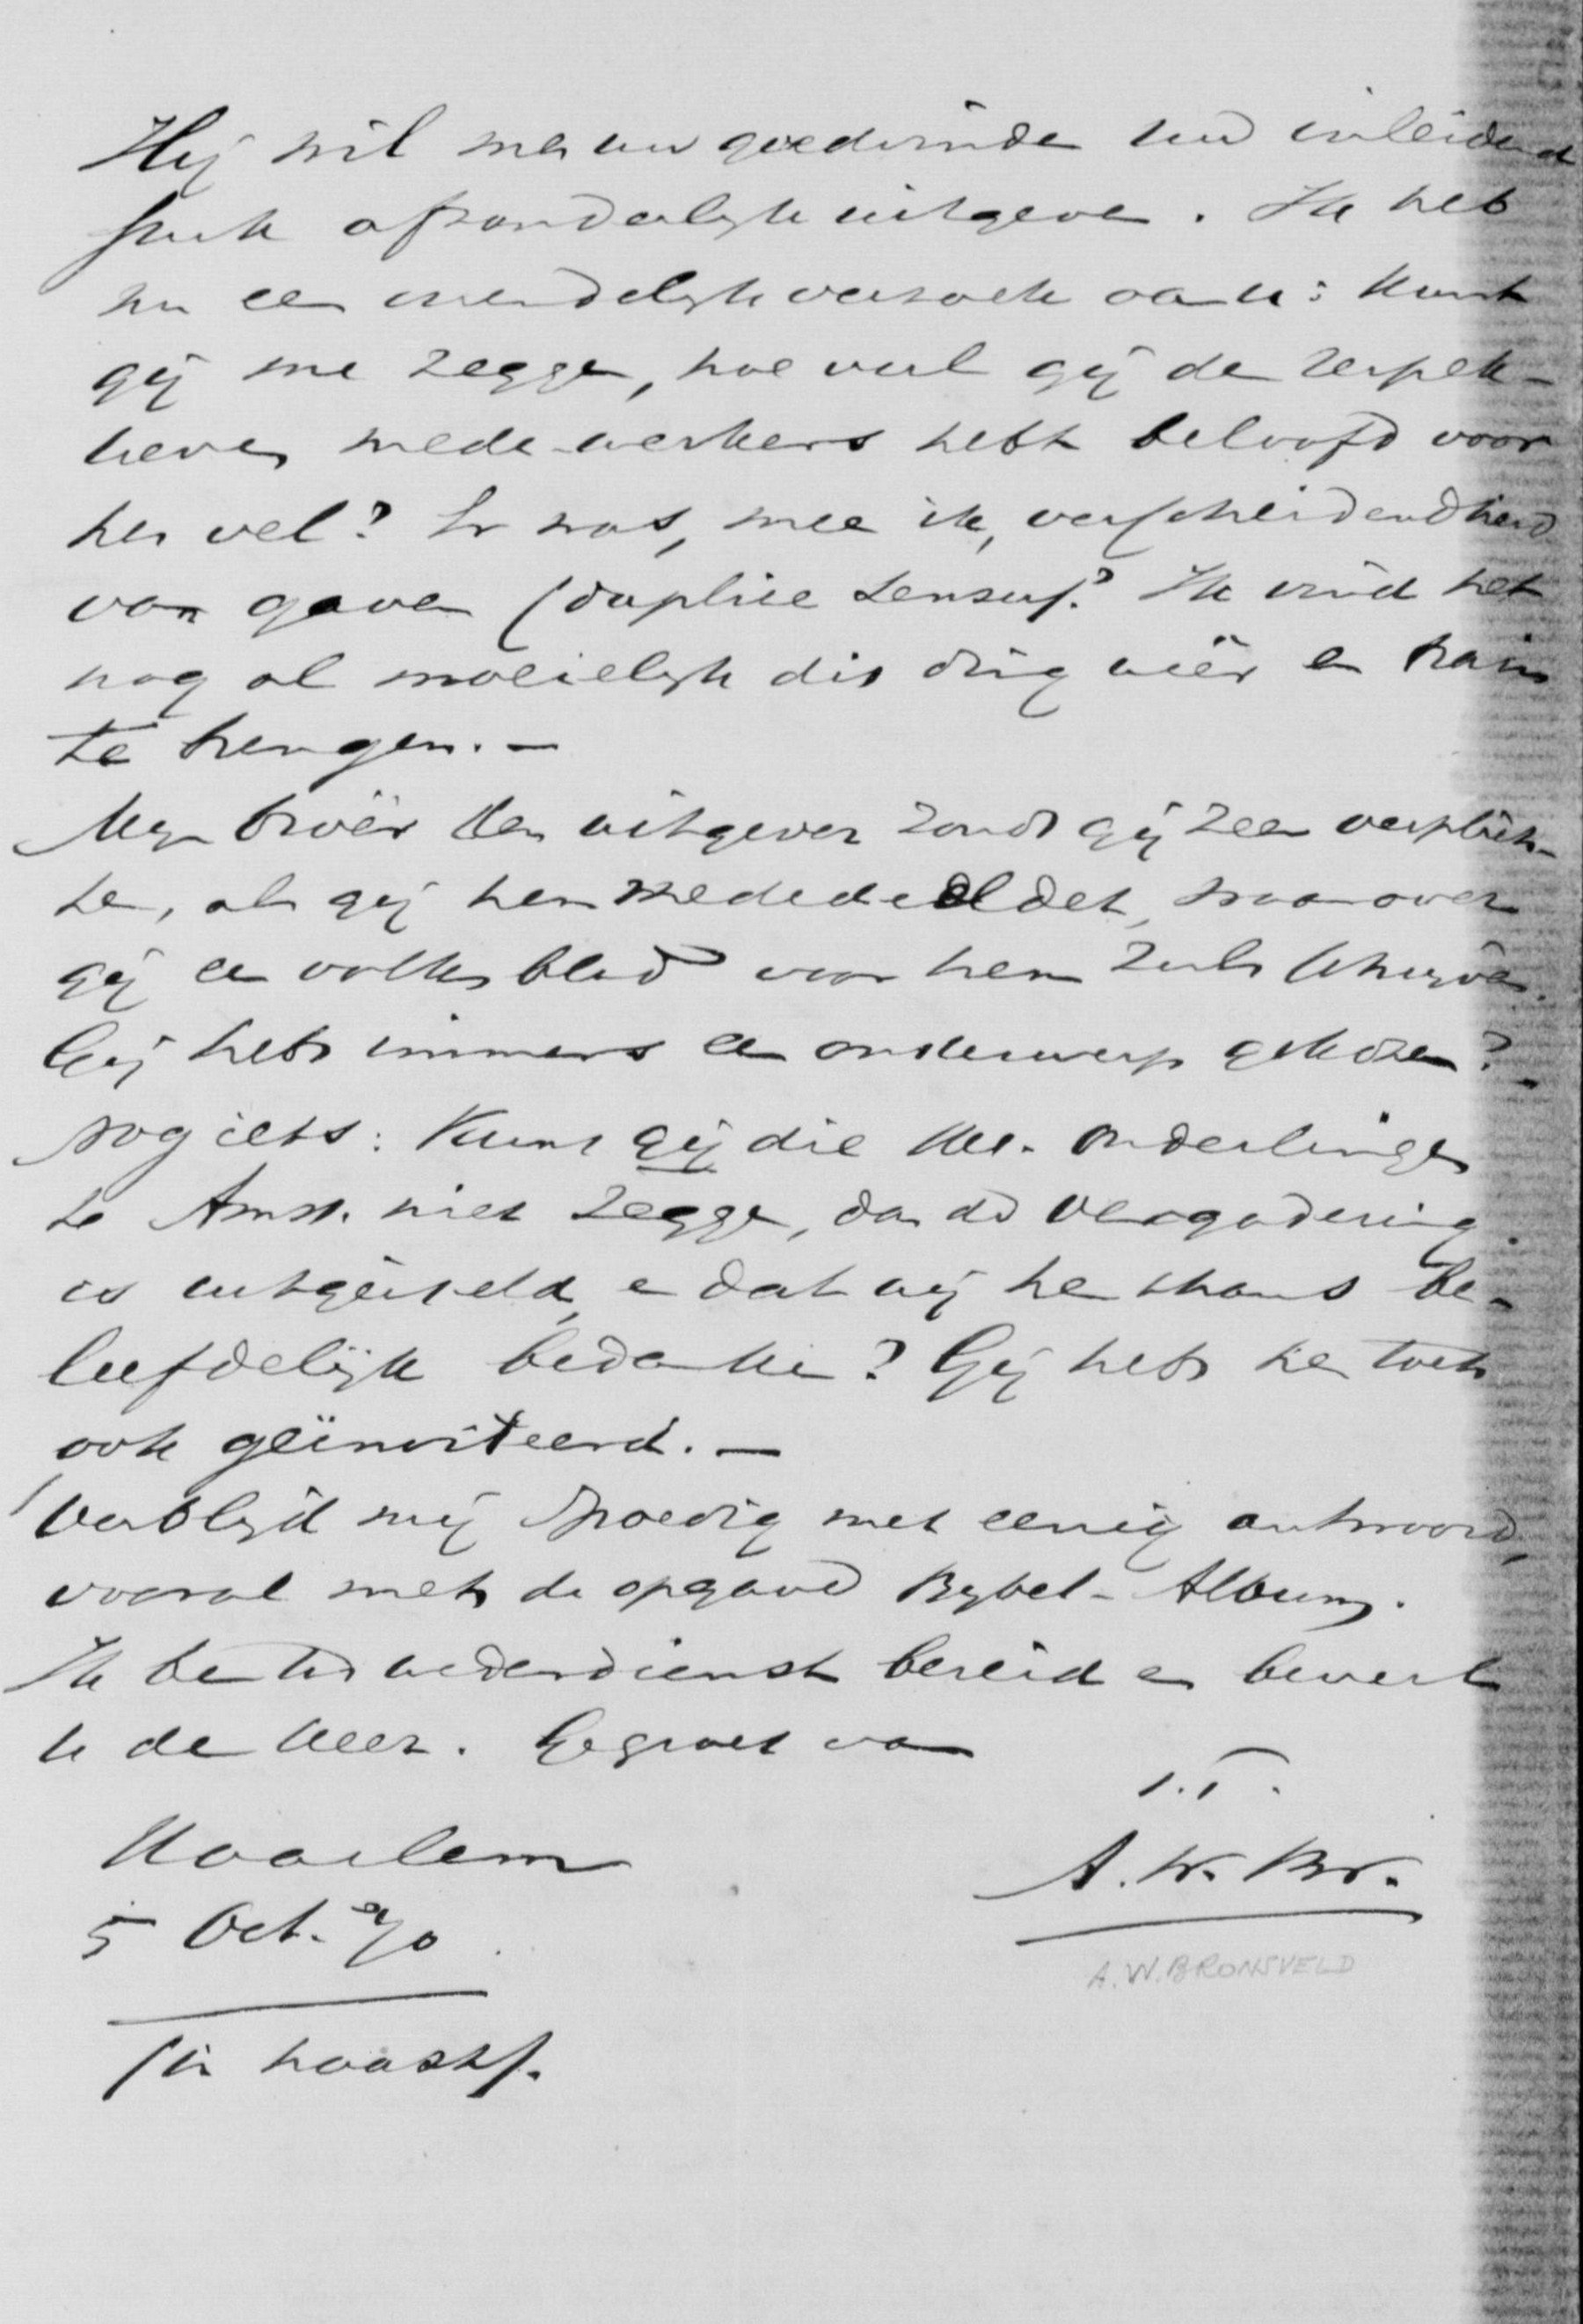 Hij wil met uw goedvinden uw inleidend
stuk afzonderlijk uitgeven. Ik heb
nu een vriendelijk verzoek aan u: kunt
gij me zeggen, hoe veel gij de respek-
tieven mede-werkers hebt beloofd voor
het vel? Er was, meen ik, verscheidendheid
van gaven (duplice sensu). Ik vind het
nog al moeielijk dit ding weêr en train
te brengen. —
Mijn broêr den uitgever zoudt gij zeer verplich-
ten, als gij hem mededeeldet, waarover
gij een volksblad voor hem zult schrijven.
Gij hebt immers een onderwerp gekozen? -
Nog iets: Kunt gij die HH. Ouderlingen
te Amst. niet zeggen, dat de vergadering
is uitgesteld, en dat wij hen thans be-
leefdelijk bedanken? Gij hebt hen toch
ook geïnviteerd. —
Verblijd mij spoedig met eenig antwoord,
vooral met de opgave Bijbel-Album.
Ik ben tot wederdienst bereid en beveel
U den Heer. Gegroet van
t.t.
A. W. Br.
A. W. BRONSVELD
Haarlem
5 Oct. 70
(in haast).